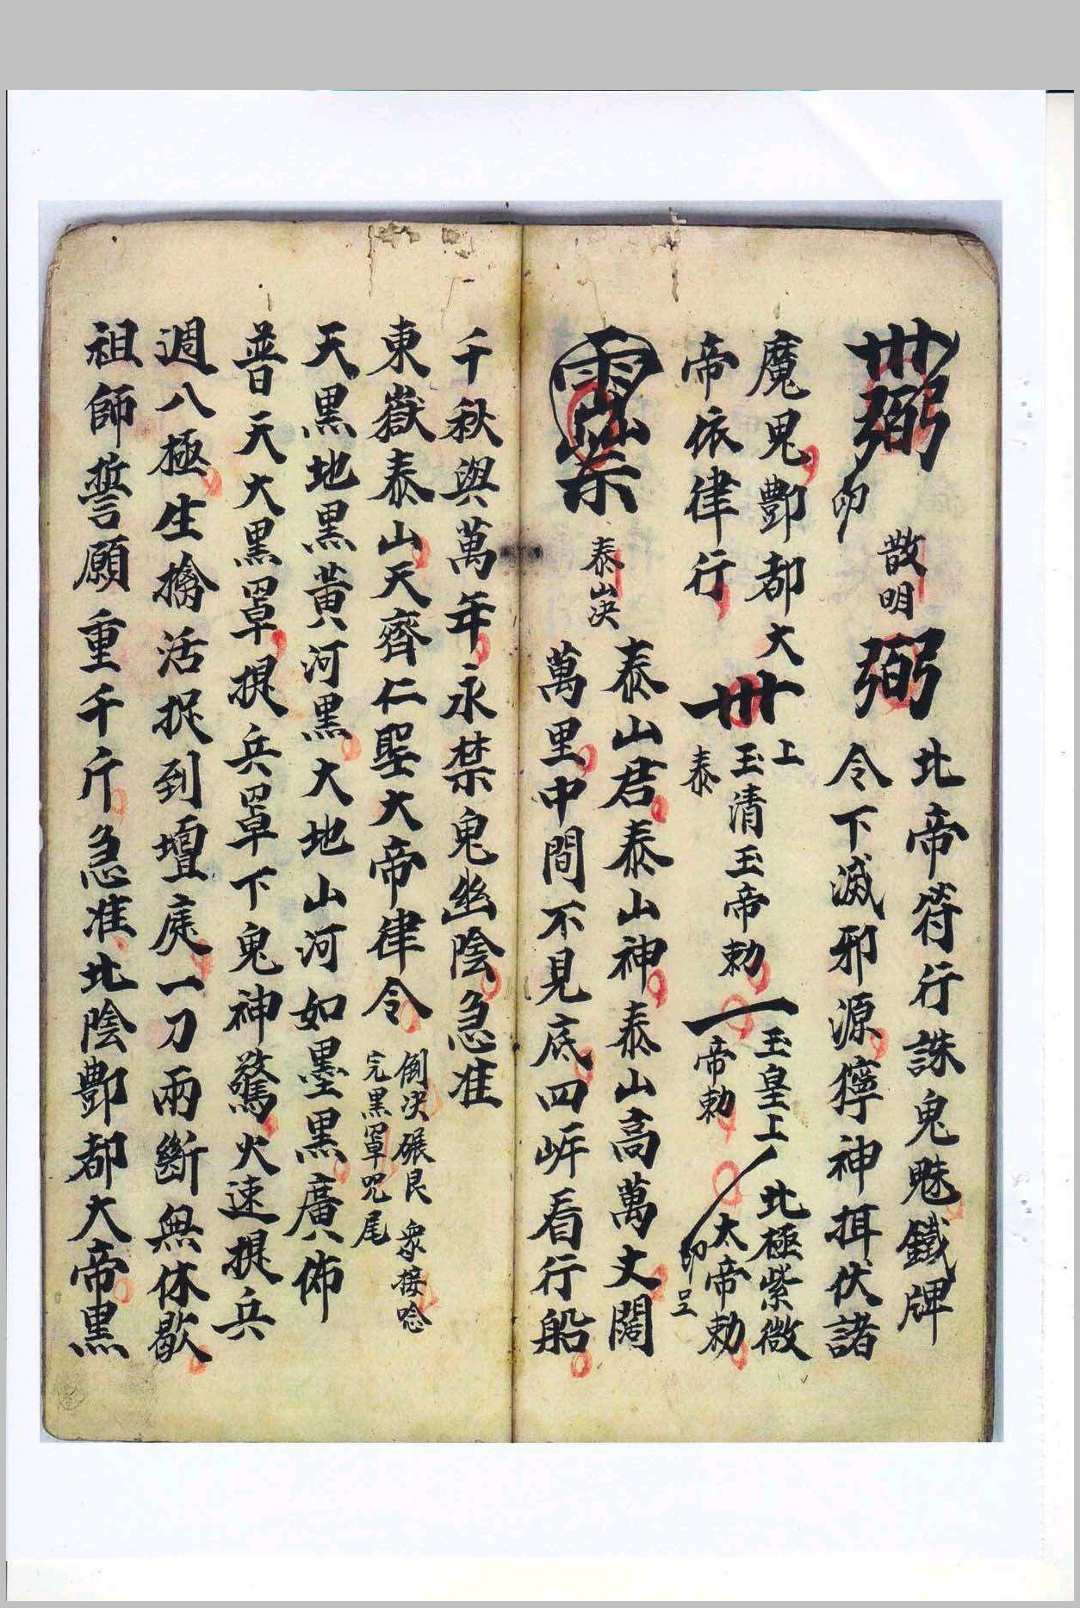 卌弼
印
散明
弼
北帝符行誅鬼魅鐵牌
令下滅邪源獰神拱伏諸
魔鬼酆都大
帝依律行
卌
上
玉清玉帝勅
泰
一
玉皇上
帝勅
北極紫微
大帝勅
印
泰山決
泰山君泰山神泰山高萬丈闊
萬里中間不見底四岸看行船
千秋與萬年永禁鬼幽陰急准
東嶽泰山天齊仁聖大帝律令
倒決碾艮 衆接唸
完黑罩咒尾
天黑地黑黃河黑大地山河如墨黑廣佈
普天大黑罩提兵罩下鬼神驚火速提兵
週八極生擒活捉到壇庭一刀兩斷無休歇
祖師誓願重千斤急准北陰酆都大帝黑